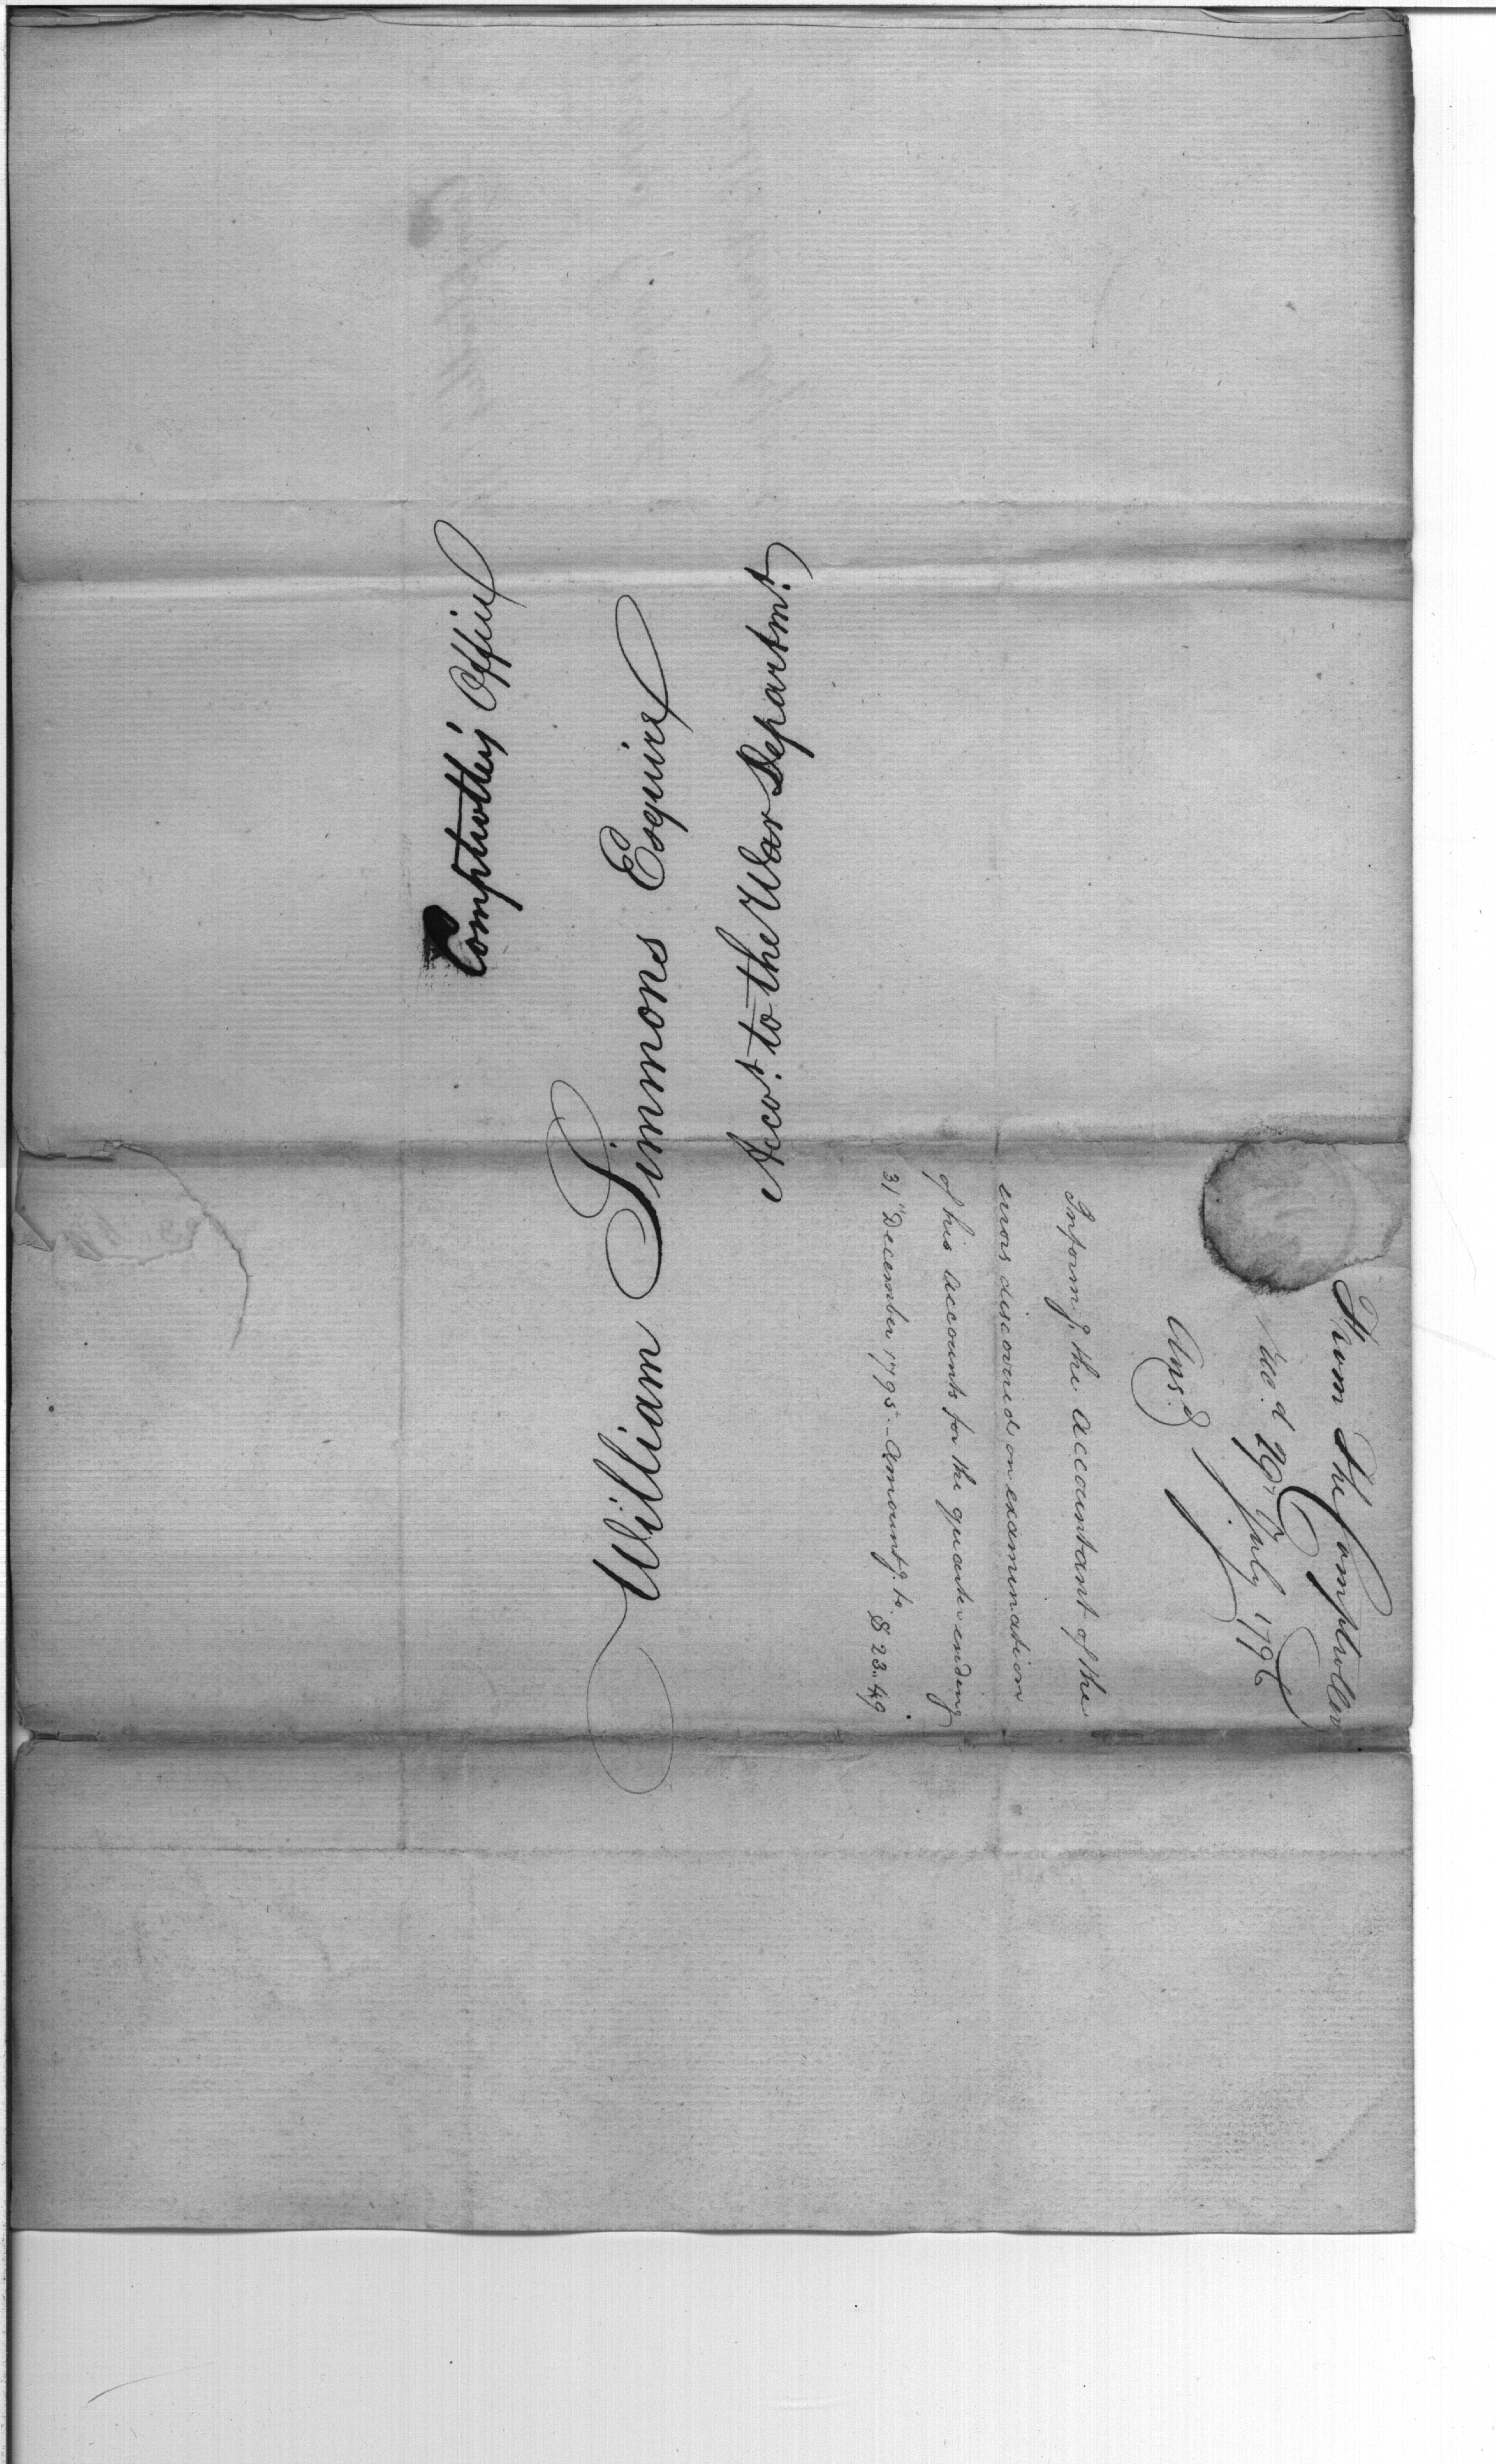 Comptroller's Office
William Simmons Esquire
Acco.t to the War Departm.t
From The Comptroller
Rec.d 29.th July 1796
Ans.d
Inform.g the accountant of the
errors discovered on examination
of his accounts for the quarter ending
31.st December 1795 - Amount.g to $ 23..49